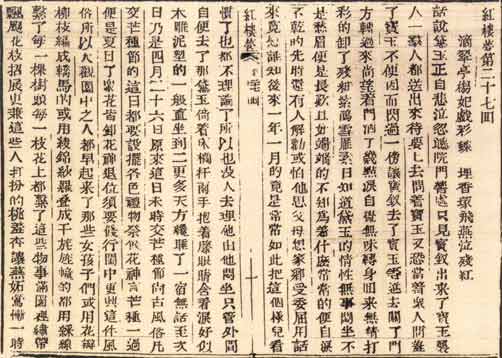 紅樓夢第二十七回
滴翠亭楊妃戲彩蝶 埋香塚飛燕泣殘紅
話說黛玉正自悲泣忽聽院門響處只見寶釵出來了寶玉襲
人一羣人都送出來待要上去問着寶玉又恐當着衆人問羞
了寶玉不便因而閃過一傍讓寶釵去了寶玉等進去關了門
方轉過來尚望着門洒了幾點淚自覺無味轉身回來無精打
彩的卸了殘粧紫鵑雪雁素日知道黛玉的情性無事悶坐不
是愁眉便是長歎且好端端的不知爲着什麽常常的便自淚
不乾的先時還有人解勸或怕他思父母想家鄉受委屈用話
來寬慰誰知後來一年一月的竟是常常如此把這個樣兒看
紅樓夢
慣了也都不理論了所以也沒人去理他由他悶坐只管外間
自便去了那黛玉倚着床欄杆兩手抱着膝眼睛含着淚好似
木雕泥塑的一般直坐到二更多天方纔睡了一宿無話至次
日乃是四月二十六日原來這日未時交芒種節尚古風俗凡
交芒種節的這日都要設擺各色禮物祭餞花神言芒種一過
便是夏日了衆花皆卸花神退位須要餞行閨中更興這件風
俗所以大觀園中之人都早起來了那些女孩子們或用花瓣
柳枝編成轎馬的或用綾錦紗羅疊成千旄旌幢的都用綵線
繫了每一棵樹頭每一枝花上都繫了這些物事滿園裡繡帶
飄颻花枝招展更兼這些人打扮的桃羞杏讓燕妬鶯慚一時